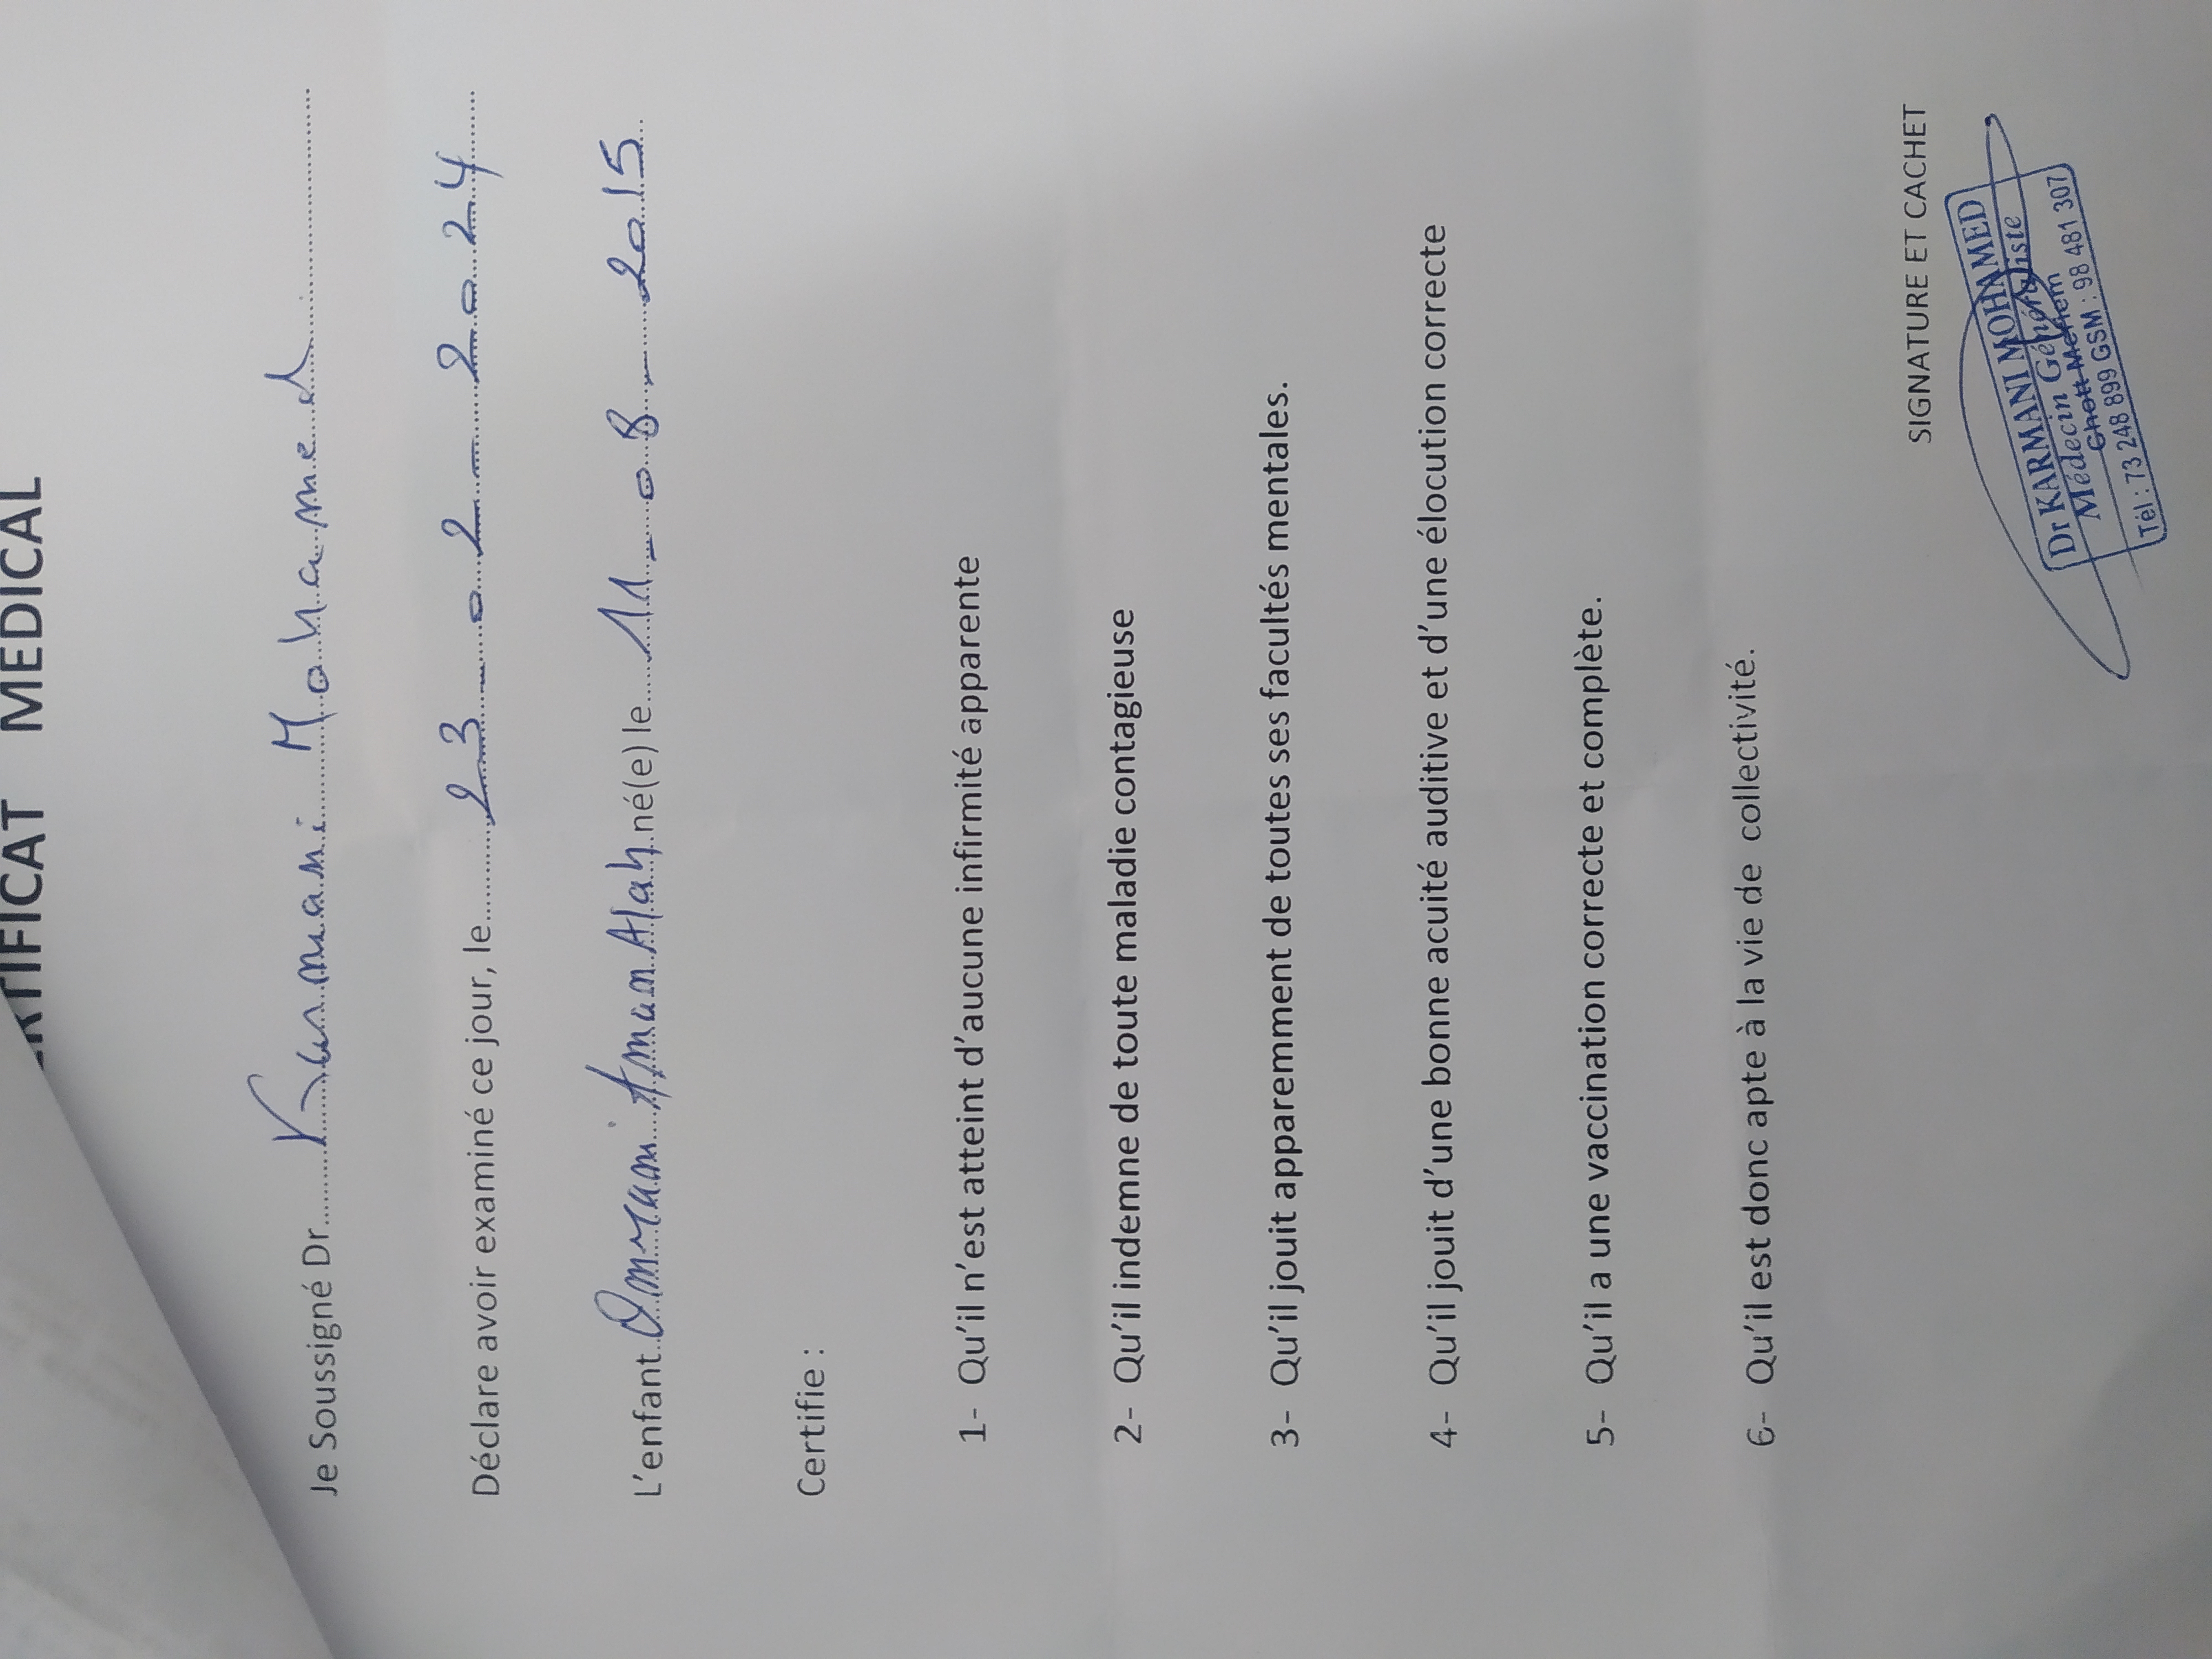 CERTIFICAT MEDICAL
Je Soussigné Dr Karmani Mohamed
Déclare avoir examiné ce jour, le 23 - 02 - 2024
L'enfant Omrani Aman Allah né(e) le 11 - 08 - 2015
Certifie :
1- Qu'il n'est atteint d'aucune infirmité apparente
2- Qu'il indemne de toute maladie contagieuse
3- Qu'il jouit apparemment de toutes ses facultés mentales.
4- Qu'il jouit d'une bonne acuité auditive et d'une élocution correcte
5- Qu'il a une vaccination correcte et complète.
6- Qu'il est donc apte à la vie de collectivité.
SIGNATURE ET CACHET
Dr KARMANI MOHAMED
Médecin Généraliste
Chott Meriem
Tél : 73 248 899 GSM : 98 481 307